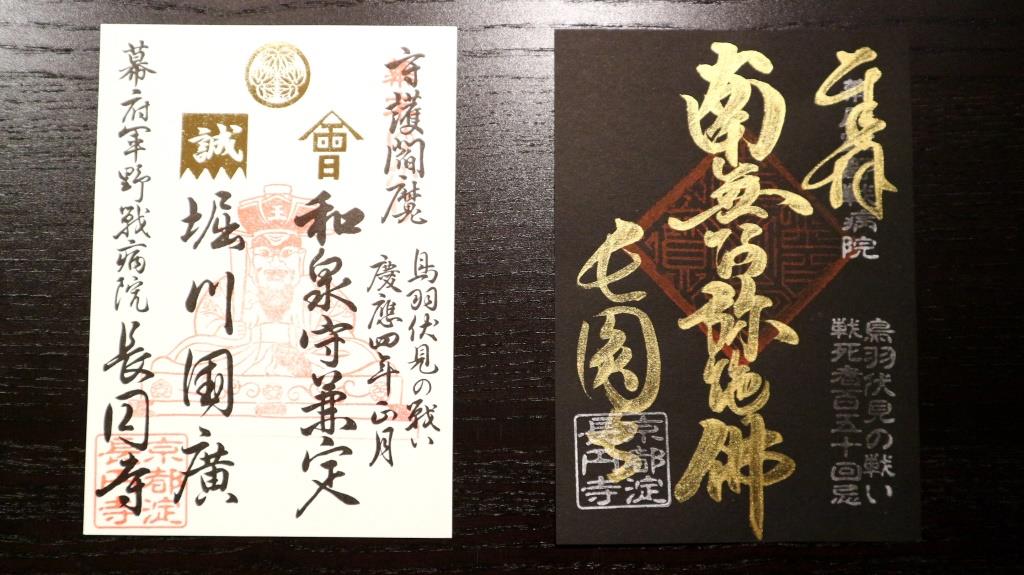 守護閻魔
鳥羽伏見の戦い
慶應四年正月
會
和泉守兼定
誠
堀川国廣
幕府軍野戦病院
長円寺
京都淀
長円寺
奉拝
病院
鳥羽伏見の戦い
戦死者百五十回忌
南無阿弥陀佛
長圓寺
京都淀
長円寺